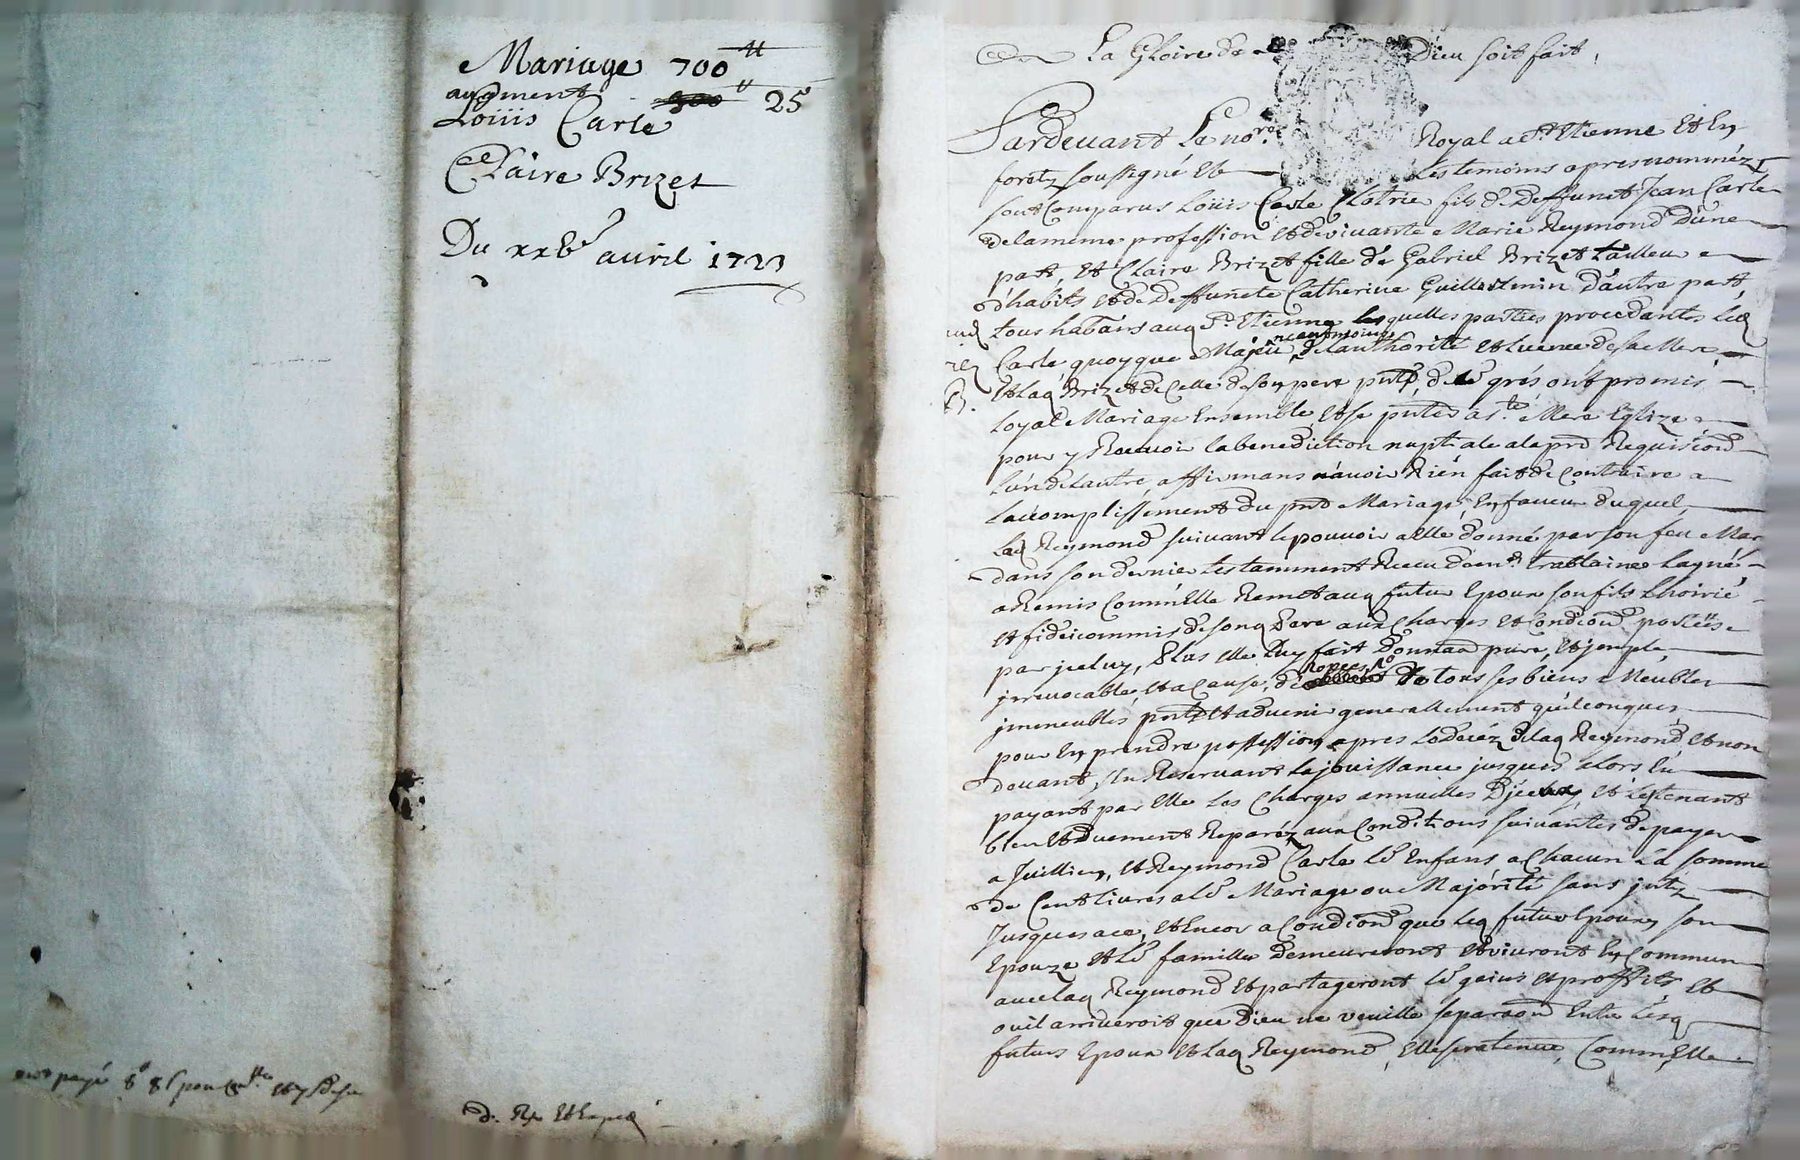 Mariage 700ᵗᵗ
augment 300ᵗᵗ 25
Loüis Carle
Claire Brizet
Du xxbᵉ avril 1723
d. Rx Et Exped
A La Gloire de Dieu soit fait,
Pardevant Le noʳᵉ Royal a Sᵗ Etienne Et En
forétz soussigné Et Les temoins apres nomméz
sont Comparus Loüis Carle Platrie fils de Deffunct Jean Carle
de la meme profession Et de vivante Marie Reymond D'une
part, Et Claire Brizet fille de Gabriel Brizet tailleur
d'habits Et de Deffuncte Catherine Guillermin D'autre part
tous habᵗᵃⁿˢ aud Sᵗ Etienne lesquelles parties procedantes Led
Carle quoyque Majeur neantmoins de Lauthorité Et Licence de sa Mere
Et Lad Brizet de Celle de son pere pntˢ, de Lʳ grés ont promis
Loyal Mariage Ensemble, Et se pnter a Sᵗᵉ Mere Eglize
pour y Recevoir la benediction nuptiale a la prᵉ Requisiᵒⁿ
Lun de Lautre affirmans navoir Rien fait de Contraire a
Laccomplissement du pnt Mariage, En faveur duquel
Lad Reymond suivant le pouvoir a Elle donné par son feu Mar
dans son dernier testamment Receu de mᵉ
a Remis Comm'Elle Remet aud futur Epoux son fils Lhoirie
Et fideicommis de sond Pere aux Charges Et Condiᵒⁿˢ portées
par jceluy, Plus Elle Luy fait Donnaᵒⁿ pure, Et simple,
jrrevocable, Et a Cause, de nopces de tous ses biens Meubles
jmmeubles pntˢ Et advenir generallement quelconques
pour En prendre possession apres Le Decéz de lad Reymond, Et non
devant, s'En Reservant La jouissance jusques alors En
payant par Elle Les Charges annuelles D'jceux, Et Les tenant
bien Et duement Reparéz aux Conditions suivantes de payer
a Juillien, Et Reymond Carle Lʳˢ Enfans a Chacun La somme
de Cent Livres a Lʳ Mariage ou Majorité sans jntˢ
Jusques a ce, Et Encor a Condiᵒⁿ que Led futur Epoux, son
Epouze Et Lʳ famille demeureront Et vivront En Commun
avec lad Reymond Et partageront Lʳˢ gains Et proffits Et
ou il arriveroit que Dieu ne veuille separaᵒⁿ Entre Lesd
futurs Epoux Et Lad Reymond, Elle sera tenue, Comm'Elle